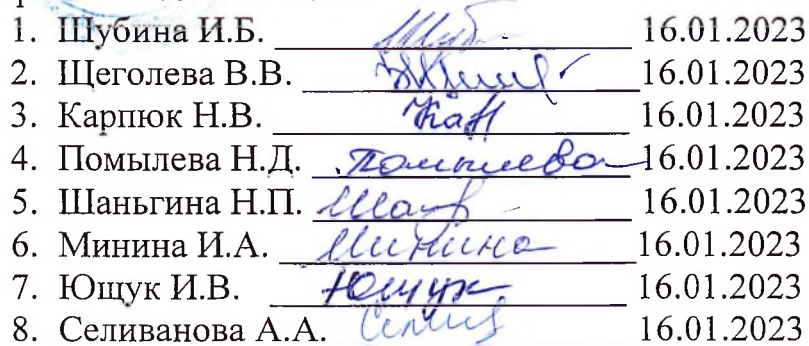 1. Шубина И.Б. Шуб 16.01.2023
2. Щеголева В.В. 16.01.2023
3. Карпюк Н.В. 16.01.2023
4. Помылева Н.Д. Помылева 16.01.2023
5. Шаньгина Н.П. 16.01.2023
6. Минина И.А. Минина 16.01.2023
7. Ющук И.В. Ющук 16.01.2023
8. Селиванова А.А. 16.01.2023